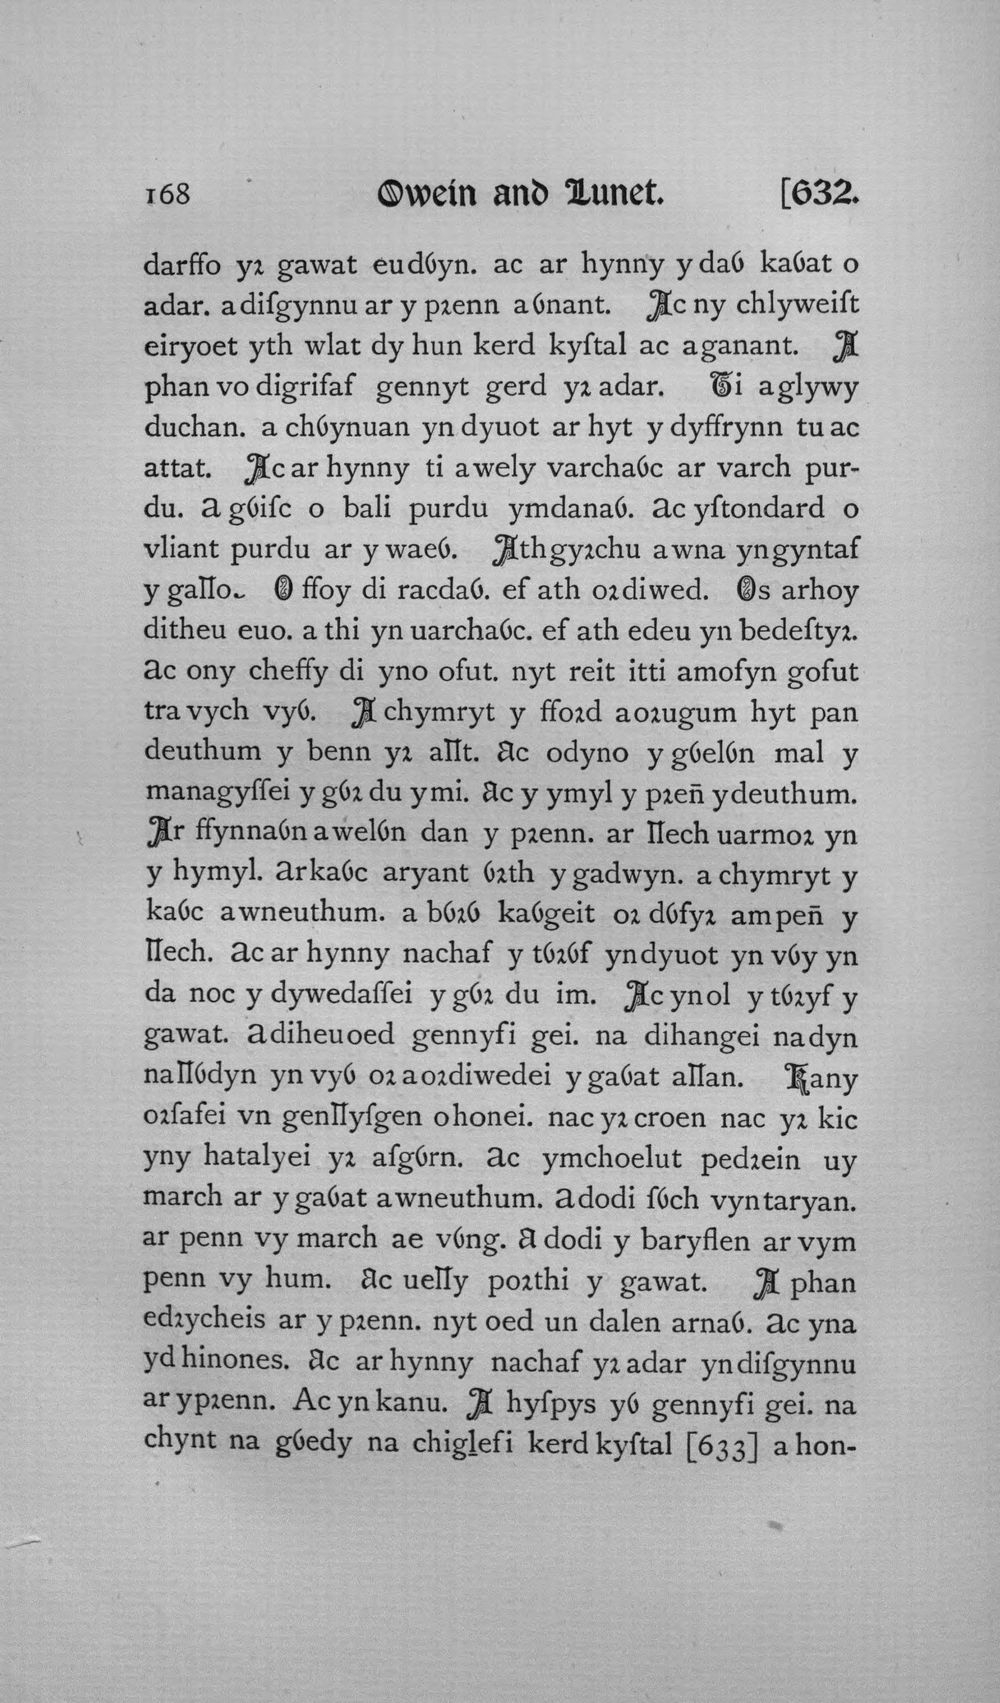 168 Owein and Lunet. [632.
darffo yꝛ gawat eudỽyn. ac ar hynny y daỽ kaỽat o
adar. a diſgynnu ar y pꝛenn a ỽnant. Ac ny chlyweiſt
eiryoet yth wlat dy hun kerd kyſtal ac a ganant. A
phan vo digrifaf gennyt gerd yꝛ adar. Ti a glywy
duchan. a chỽynuan yn dyuot ar hyt y dyffrynn tu ac
attat. Ac ar hynny ti a wely varchaỽc ar varch pur-
du. a gỽiſc o bali purdu ymdanaỽ. ac yſtondard o
vliant purdu ar y waeỽ. Ath gyꝛchu a wna yn gyntaf
y gaỻo. O ffoy di racdaỽ. ef ath oꝛdiwed. Os arhoy
ditheu euo. a thi yn uarchaỽc. ef ath edeu yn bedeſtyꝛ.
ac ony cheffy di yno ofut. nyt reit itti amofyn gofut
tra vych vyỽ. A chymryt y ffoꝛd a oꝛugum hyt pan
deuthum y benn yꝛ aỻt. Ac odyno y gỽelỽn mal y
managyſſei y gỽꝛ du y mi. Ac y ymyl y pꝛen̄ y deuthum.
Ar ffynnaỽn a welỽn dan y pꝛenn. ar ỻech uarmoꝛ yn
y hymyl. ar kaỽc aryant ỽꝛth y gadwyn. a chymryt y
kaỽc a wneuthum. a bỽꝛỽ kaỽgeit oꝛ dỽfyꝛ am pen̄ y
ỻech. ac ar hynny nachaf y tỽꝛỽf yn dyuot yn vỽy yn
da noc y dywedaſſei y gỽꝛ du im. Ac yn ol y tỽꝛyf y
gawat. a diheu oed gennyfi gei. na dihangei na dyn
na ỻỽdyn yn vyỽ oꝛ a oꝛdiwedei y gaỽat aỻan. Kany
oꝛſafei vn genỻyſgen o honei. nac yꝛ croen nac yꝛ kic
yny hatalyei yꝛ aſgỽrn. ac ymchoelut pedꝛein uy
march ar y gaỽat a wneuthum. a dodi ſỽch vyn taryan.
ar penn vy march ae vỽng. A dodi y baryflen ar vym
penn vy hum. Ac ueỻy poꝛthi y gawat. A phan
edꝛycheis ar y pꝛenn. nyt oed un dalen arnaỽ. ac yna
yd hinones. Ac ar hynny nachaf yꝛ adar yn diſgynnu
ar y pꝛenn. Ac yn kanu. A hyſpys yỽ gennyfi gei. na
chynt na gỽedy na chiglefi kerd kyſtal [633] a hon-